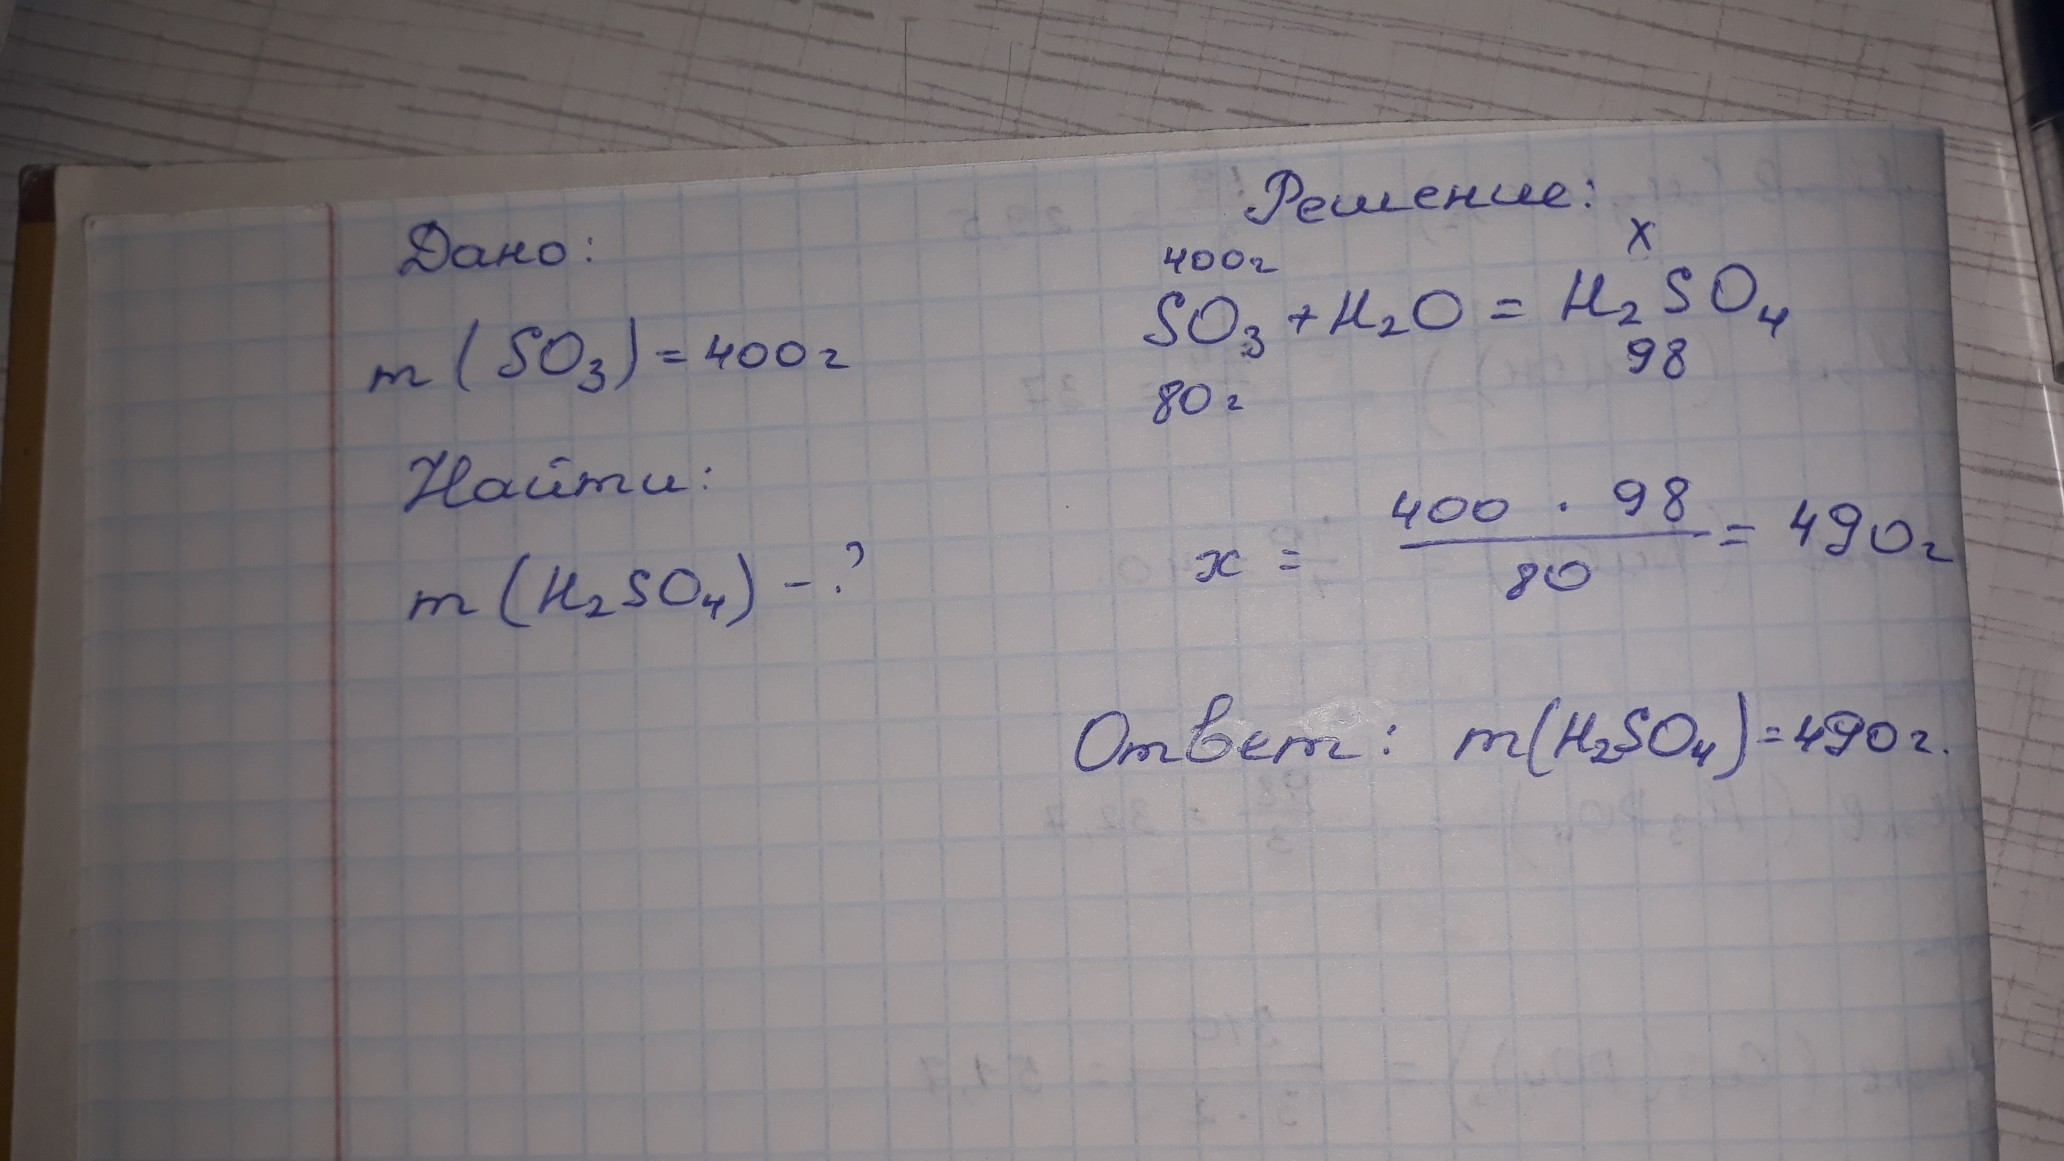 Дано:
m(SO₃)=400г
Найти:
m(H₂SO₄)-?
Решение:
400г x
SO₃+H₂O=H₂SO₄
80г 98
x = 400 · 98 / 80 = 490г
Ответ: m(H₂SO₄)=490г.